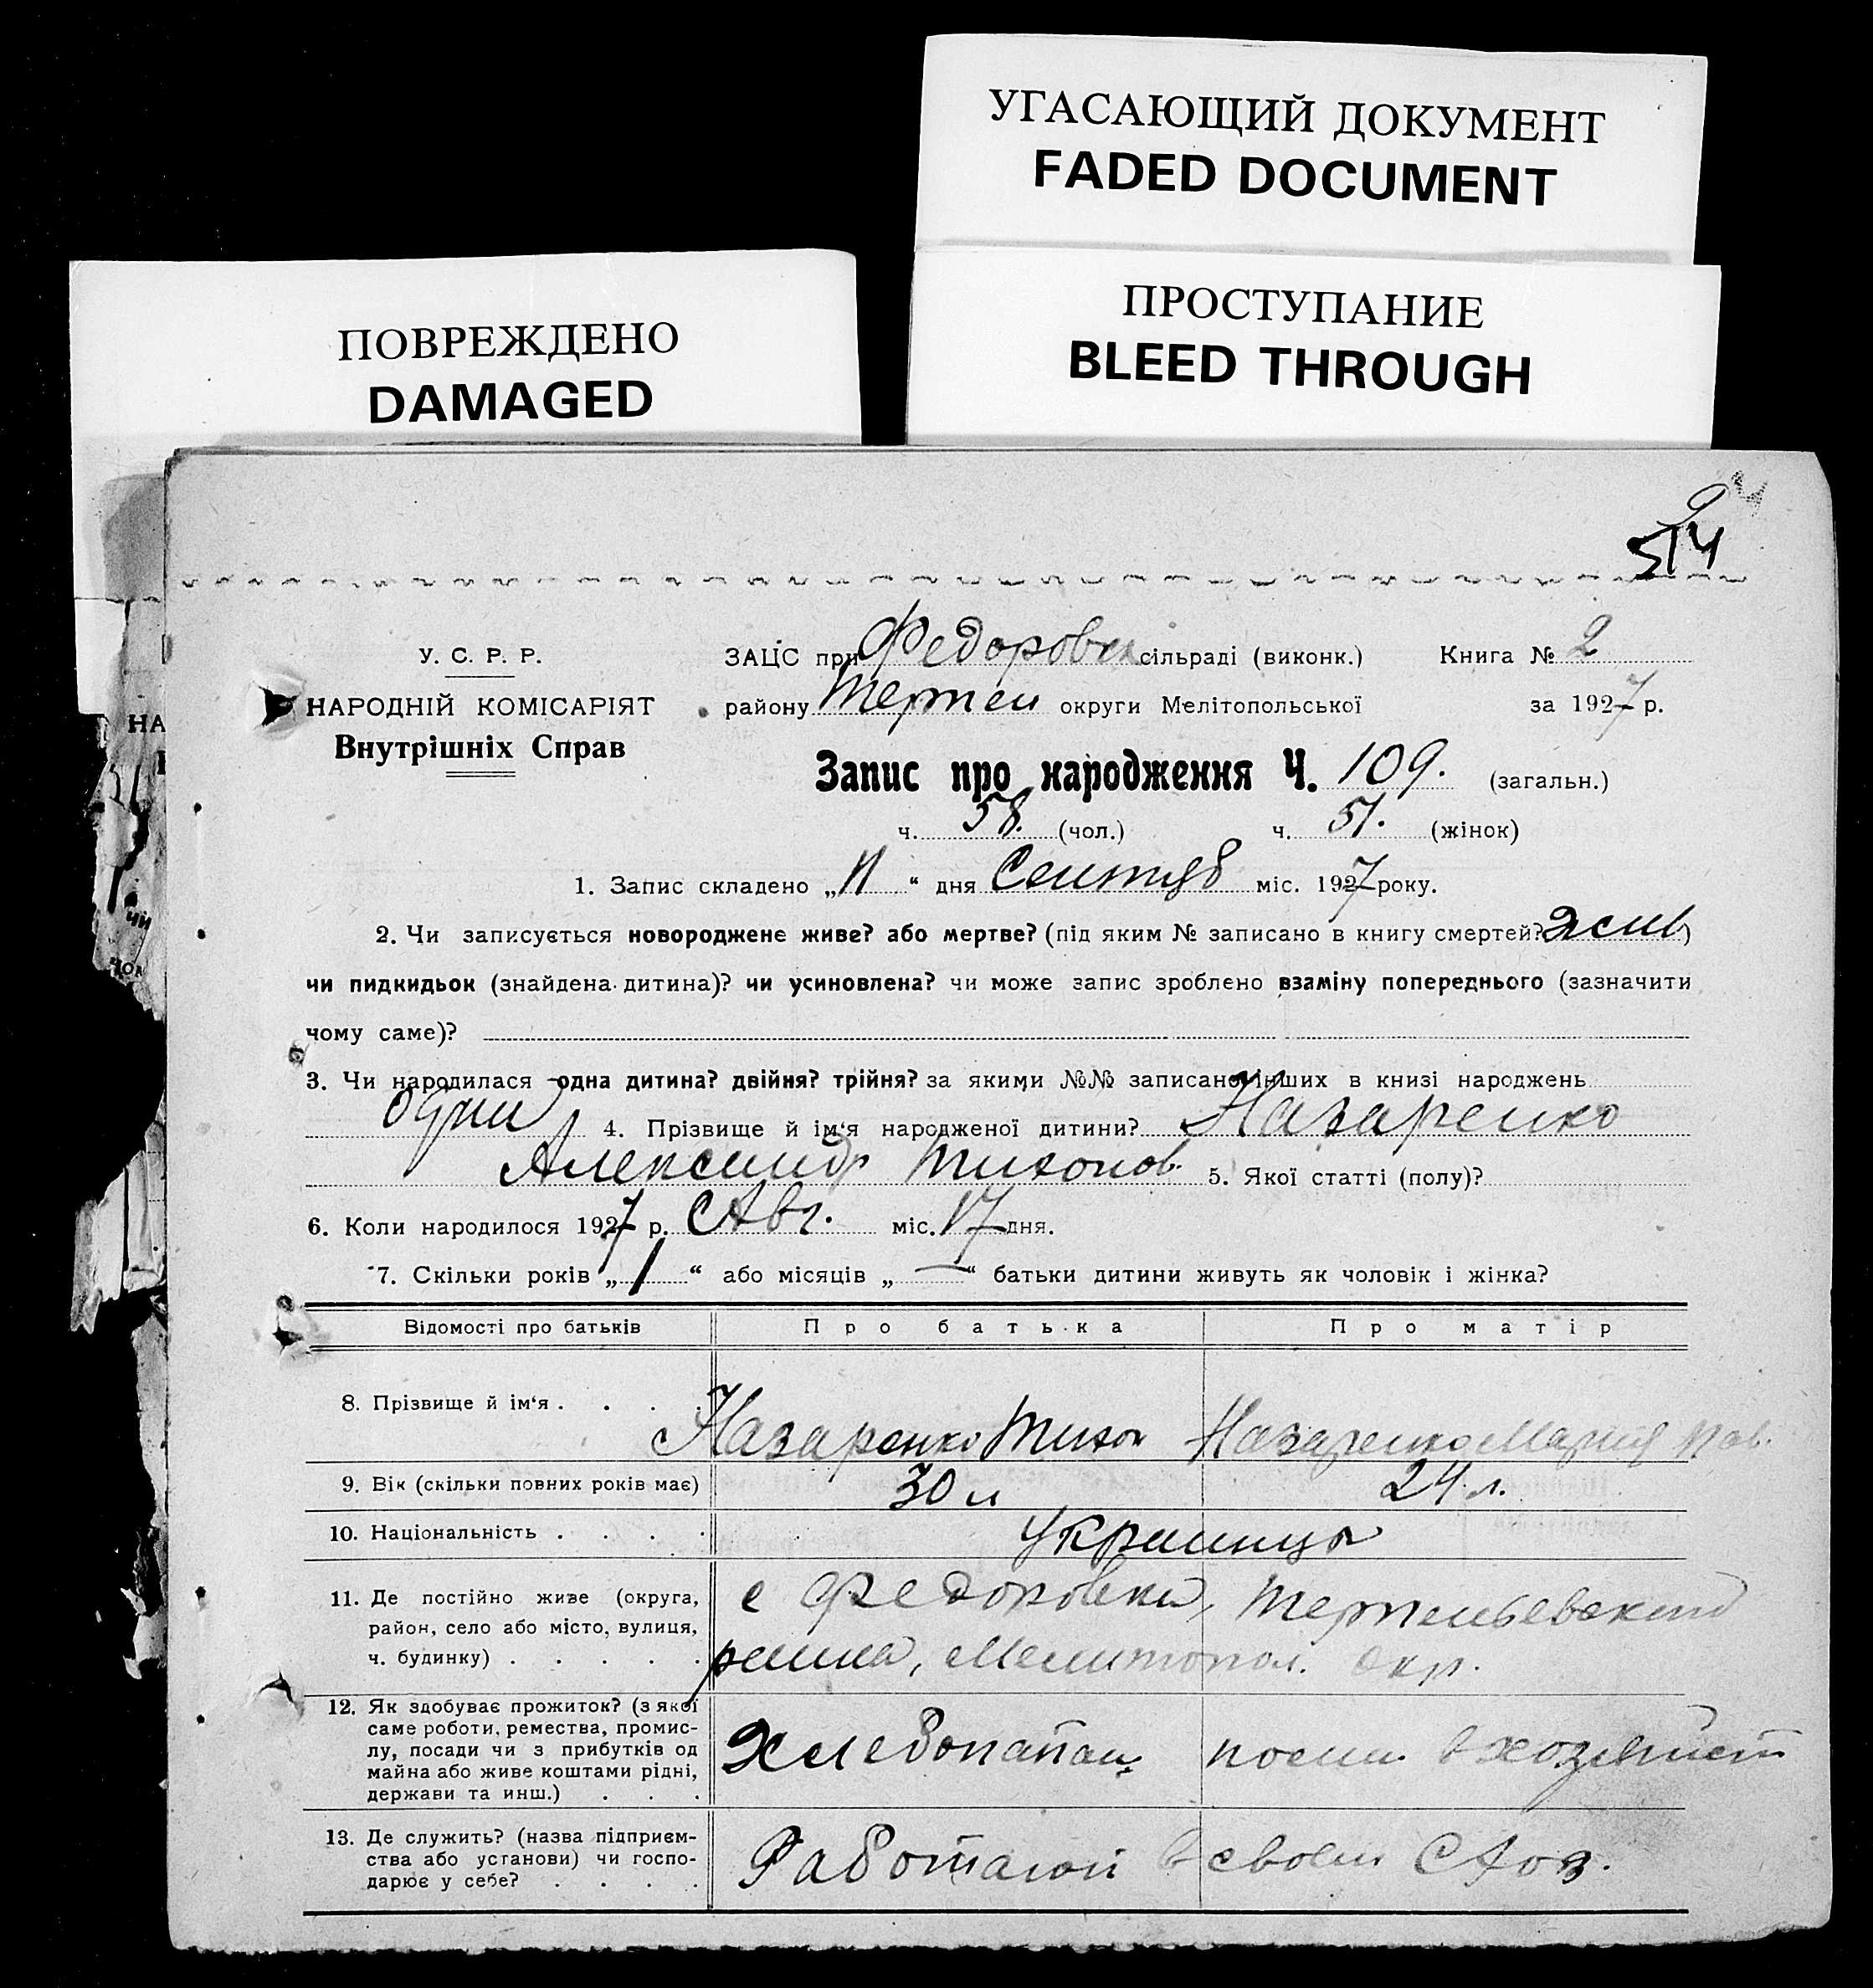 УГАСАЮЩИЙ ДОКУМЕНТ
FADED DOCUMENT
ПРОСТУПАНИЕ
BLEED THROUGH
ПОВРЕЖДЕНО
DAMAGED
514
У. С. Р. Р.
НАРОДНІЙ КОМІСАРІЯТ
Внутрішніх Справ
ЗАЦС при Федоровск сільраді (виконк.) Книга № 2
району Терпен округи Мелітопольської за 1927 р.
Запис про народження Ч. 109. (загальн.)
ч. 58. (чол.) ч. 51. (жінок)
1. Запис складено „11“ дня Сентяб міс. 1927 року.
2. Чи записується новороджене живе? або мертве? (під яким № записано в книгу смертей? жив)
чи пидкидьок (знайдена дитина)? чи усиновлена? чи може запис зроблено взаміну попереднього (зазначити
чому саме)?
3. Чи народилася одна дитина? двійня? трійня? за якими №№ записано інших в книзі народжень
один 4. Прізвище й ім‘я народженої дитини? Назаренко
Александр Тихонов. 5. Якої статті (полу)?
6. Коли народилось 1927 р. Авг. міс. 17 дня.
7. Скільки років „1“ або місяців „—“ батьки дитини живуть як чоловік і жінка?
Відомості про батьків Про батька Про матір
8. Прізвище й ім‘я . . . . Назаренко Тихон Назаренко Мария Пав.
9. Вік (скільки повних років має) 30 л 24 л.
10. Національність . . . . Украинцы
11. Де постійно живе (округа,
район, село або місто, вулиця,
ч. будинку) . . . . .
с Федоровка, Терпеньевский
района, Мелитопол. окр.
12. Як здобуває прожиток? (з якої
саме роботи, ремества, промис-
лу, посади чи з прибутків од
майна або живе коштами рідні,
держави та инш.) . . .
Хлебопашец помощ. в хозяйст
13. Де служить? (назва підприєм-
ства або установи) чи госпо-
дарює у себе? . . . .
Работают в своем хоз.